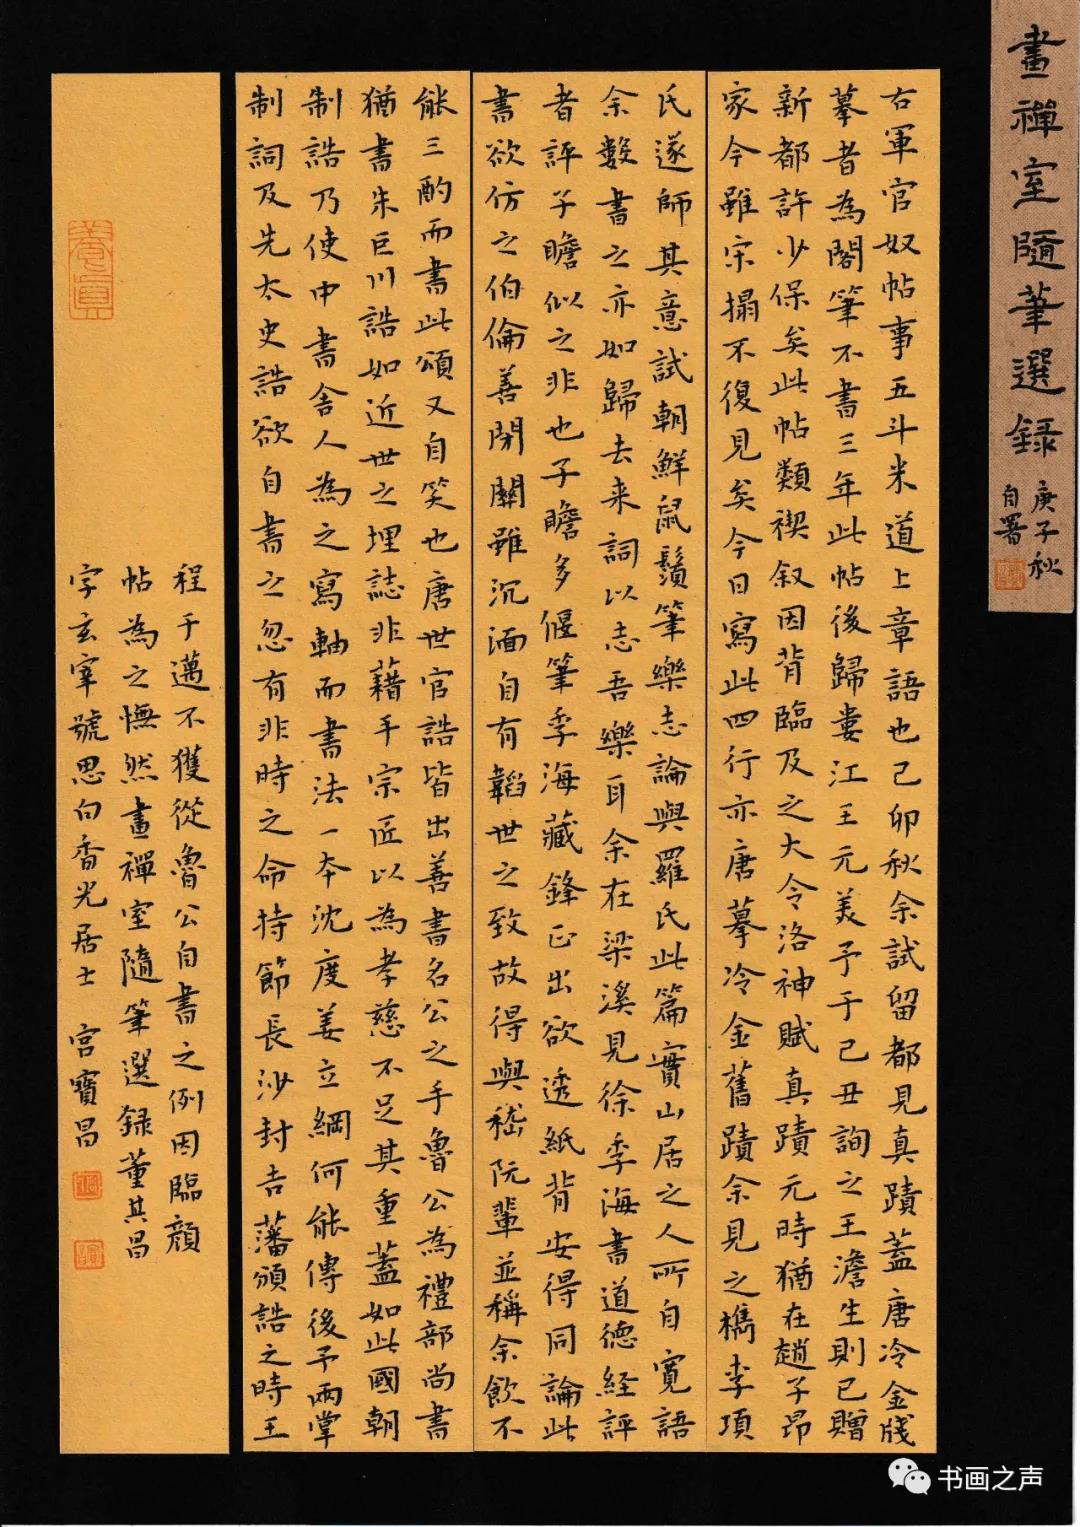 畫禪室隨筆選錄
庚子秋
自署
右軍官奴帖事五斗米道上章語也己卯秋余試留都見真蹟蓋唐冷金牋
摹者為閣筆不書三年此帖後歸婁江王元美予于己丑詢之王澹生則已贈
新都許少保矣此帖類禊叙因背臨及之大令洛神賦真蹟元時猶在趙子昂
家今雖宋搨不復見矣今日寫此四行亦唐摹冷金舊蹟余見之檇李項
氏遂師其意試朝鮮鼠鬚筆樂志論與羅氏此篇實山居之人所自寬語
余數書之亦如歸去来詞以志吾樂耳余在梁溪見徐季海書道德經評
者評子瞻似之非也子瞻多偃筆季海藏鋒正出欲透紙背安得同論此
書欲仿之伯倫善閉關雖沉湎自有韜世之致故得與嵇阮輩並稱余飲不
能三酌而書此頌又自笑也唐世官誥皆出善書名公之手魯公為禮部尚書
猶書朱巨川誥如近世之埋誌非藉手宗匠以為孝慈不足其重蓋如此國朝
制誥乃使中書舍人為之寫軸而書法一本沈度姜立綱何能傳後予兩掌
制詞及先太史誥欲自書之忽有非時之命持節長沙封吉藩頒誥之時王
程于邁不獲從魯公自書之例因臨顏
帖為之憮然畫禪室隨筆選録董其昌
字玄宰號思白香光居士 宮寶昌
书画之声